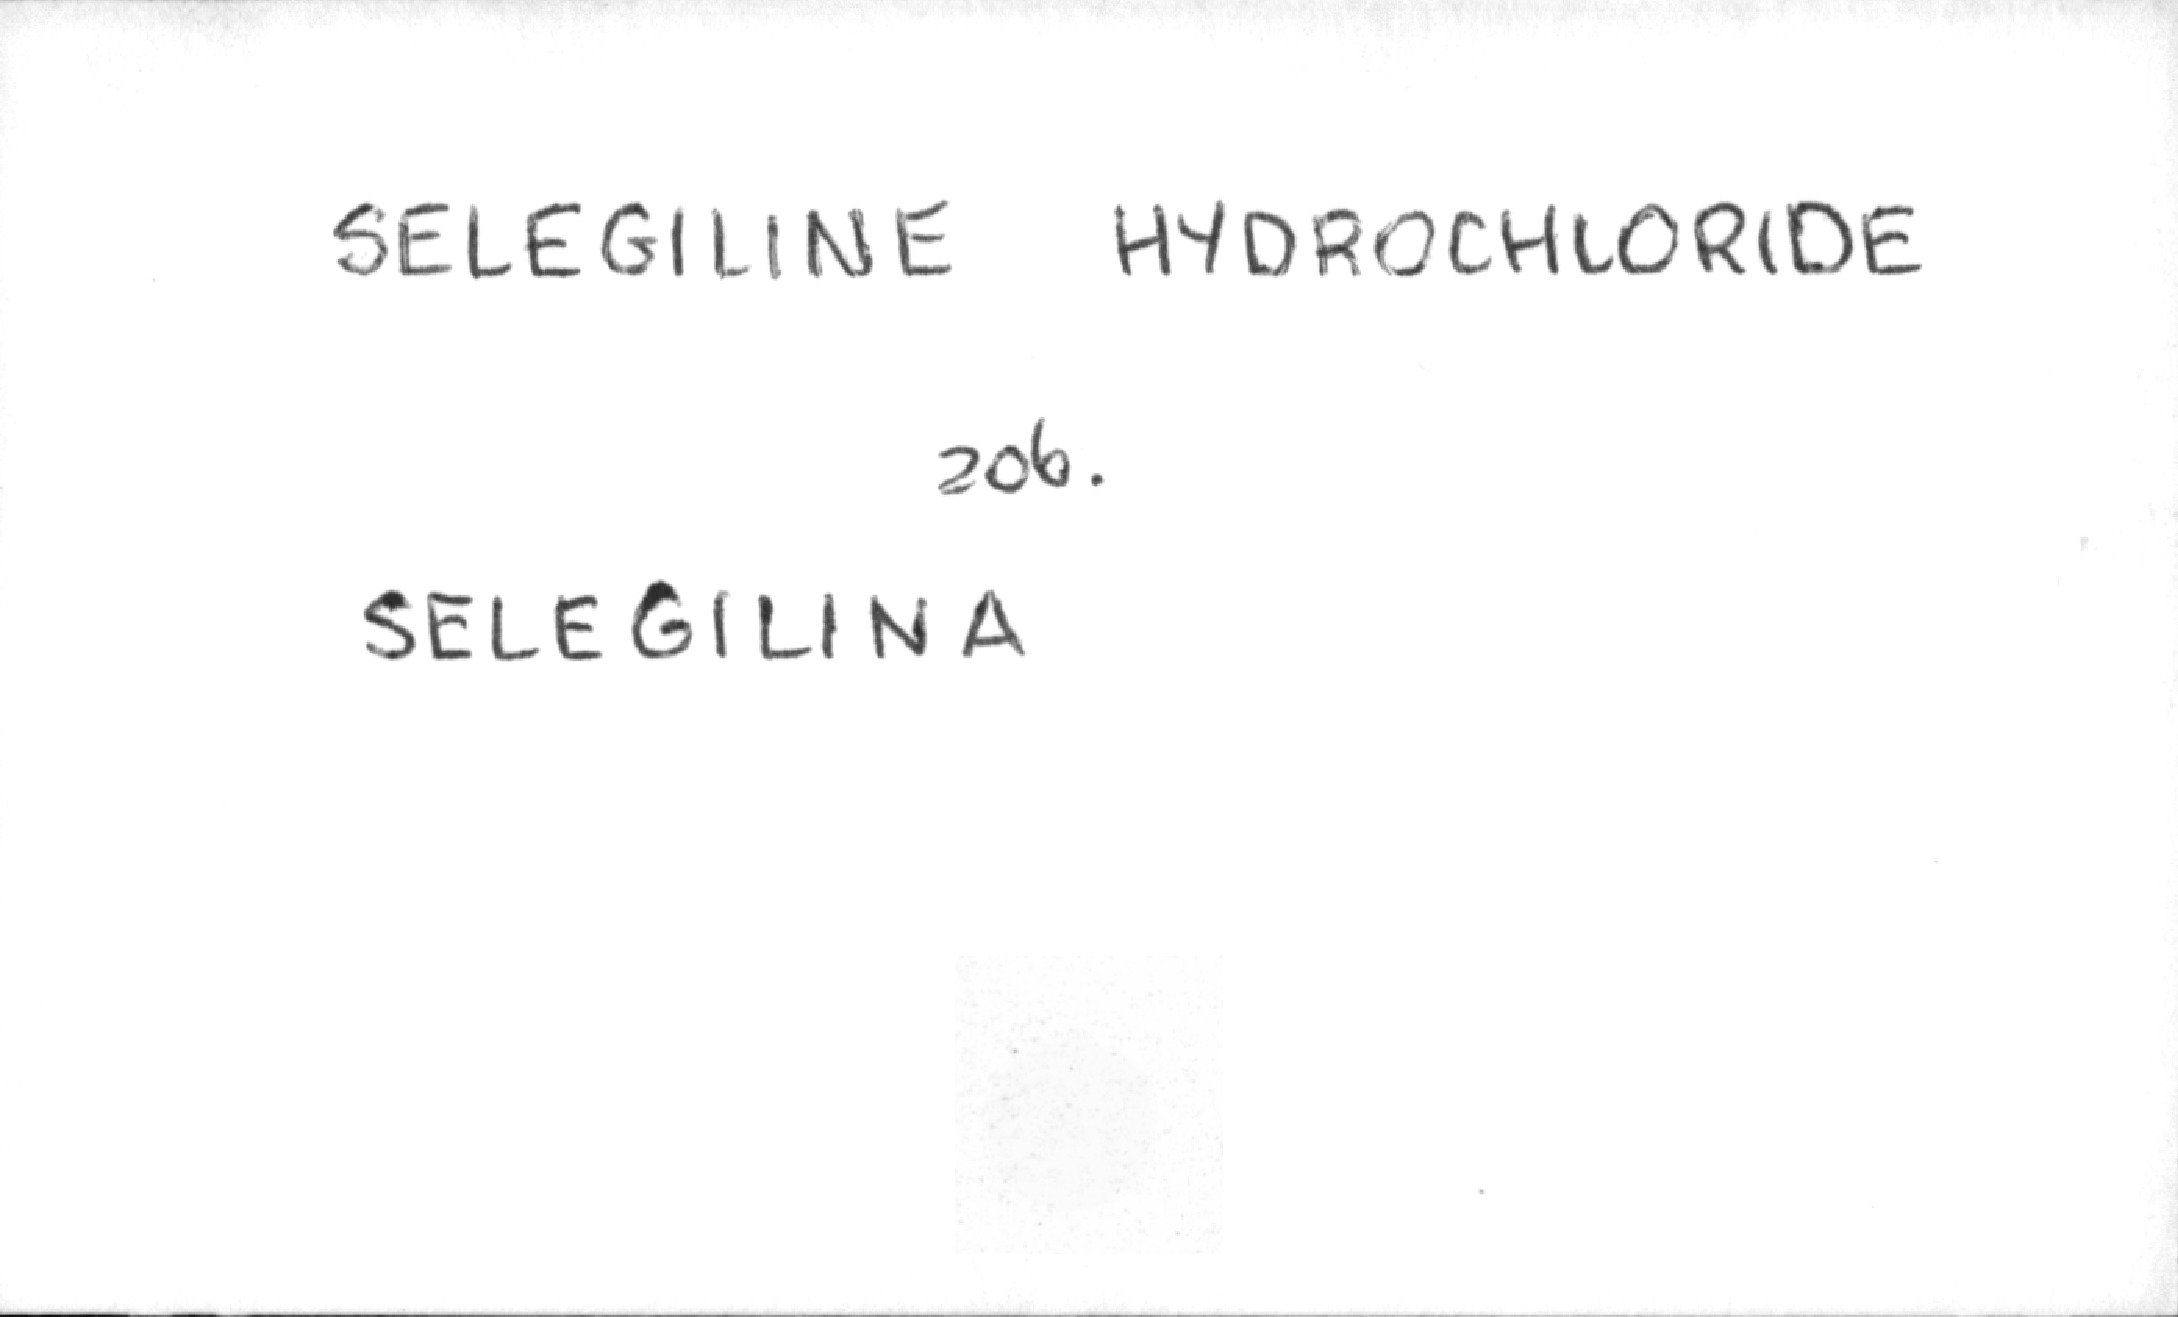 SELEGILINE HYDROCHLORIDE
zob.
SELEGILINA